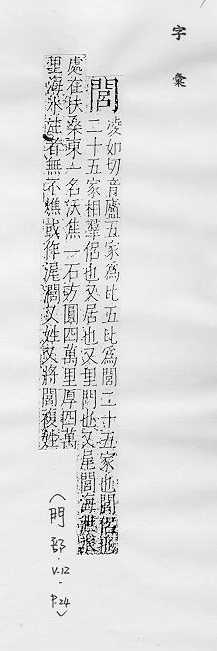 字彙
閭
凌如切音廬五家為比五比為閭二十五家也閭侶也
二十五家相羣侶也又居也又里門也又尾閭海洩水
處在扶桑東一名沃焦一石方圓四萬里厚四萬
里海水注者無不燋或作浘澗又姓又將閭複姓
(門部.V.12-P.24)